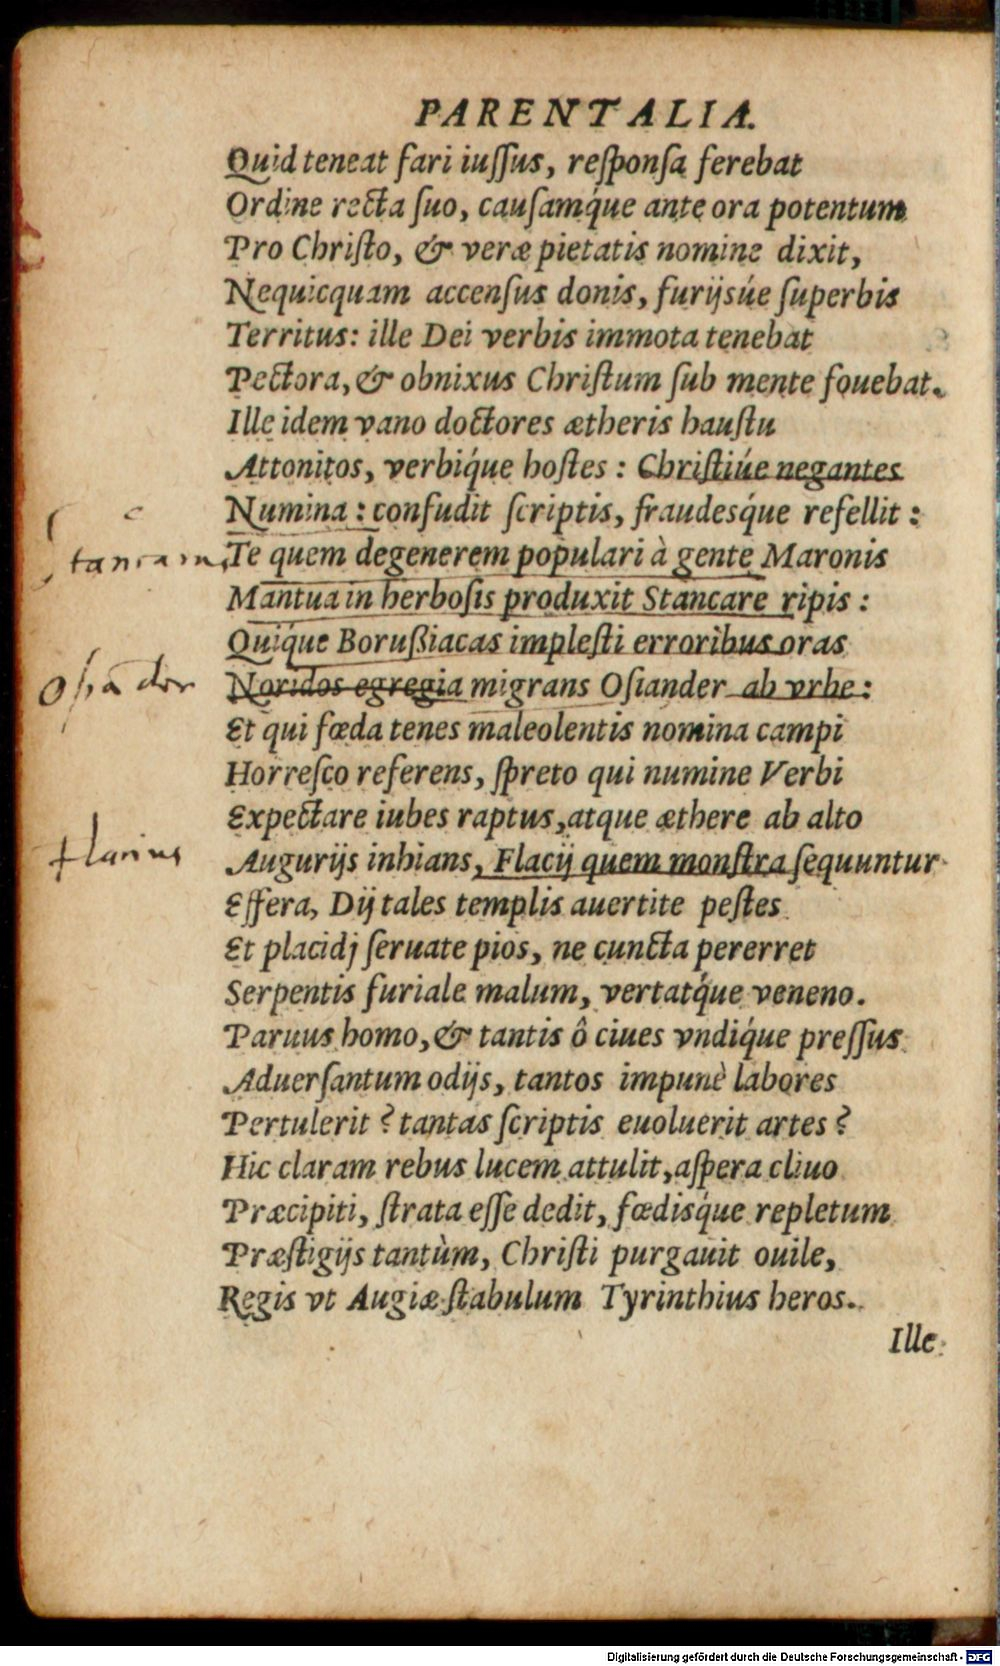 PARENTALIA.
Quid teneat fari iuſſus, reſponſa ferebat
Ordine recta ſuo, cauſamq́ue ante ora potentum
Pro Chriſto, & veræ pietatis nomine dixit,
Nequicquam accenſus donis, furijsúe ſuperbis
Territus: ille Dei verbis immota tenebat
Pectora, & obnixus Chriſtum ſub mente fouebat.
Ille idem vano doctores ætheris hauſtu
Attonitos, verbiq́ue hoſtes: Chriſtiúe negantes
Numina: confudit ſcriptis, fraudesq́ue refellit:
Te quem degenerem populari à gente Maronis
Mantua in herboſis produxit Stancare ripis:
Quiq́ue Borußiacas impleſti erroribus oras
Noridos egregia migrans Oſiander ab vrbe:
Osiander
Et qui fœda tenes maleolentis nomina campi
Horreſco referens, ſpreto qui numine Verbi
Expectare iubes raptus, atque æthere ab alto
Augurijs inhians, Flacij quem monſtra ſequuntur
Flacius
Effera, Dij tales templis auertite peſtes
Et placidj ſeruate pios, ne cuncta pererret
Serpentis furiale malum, vertatq́ue veneno.
Paruus homo, & tantis ô ciues vndiq́ue preſſus
Aduerſantum odijs, tantos impunè labores
Pertulerit? tantas ſcriptis euoluerit artes?
Hic claram rebus lucem attulit, aſpera cliuo
Præcipiti, ſtrata eſſe dedit, fœdisq́ue repletum
Præſtigijs tantùm, Chriſti purgauit ouile,
Regis vt Augiæ ſtabulum Tyrinthius heros.
Ille
Digitalisierung gefördert durch die Deutsche Forschungsgemeinschaft - DFG